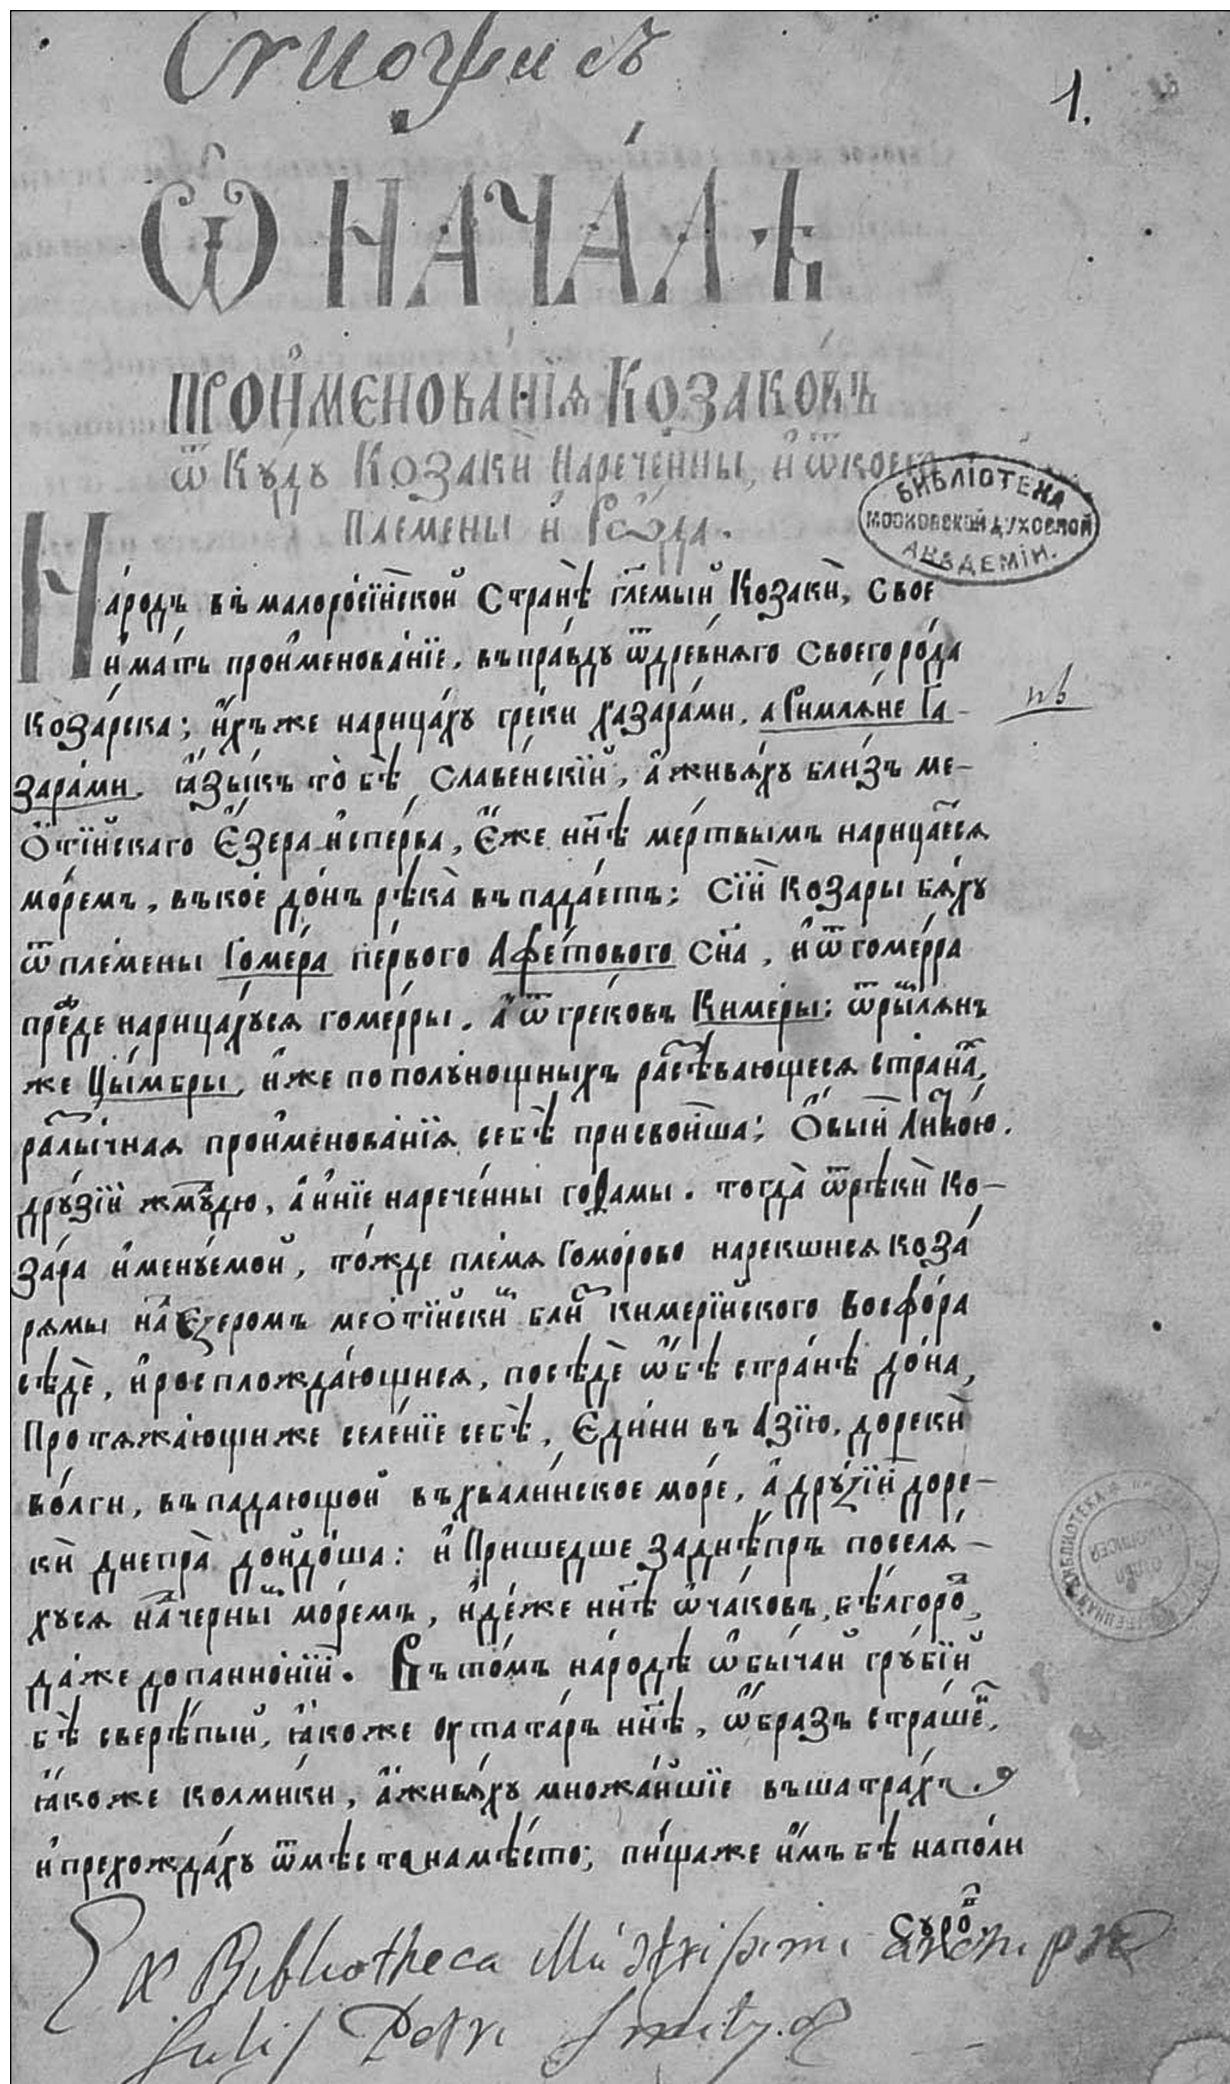 1.
Ѡ НАЧА́ЛѢ
ПРОИМЕНОВАНЇѦ КОЗАКОВЪ
ѿ Кꙋдꙋ Козакѝ Нарече́нны, и҆ ѿ коегѡ
племены и҆ Рѡда.
БИБЛІОТЕКА
МОСКОВСКОЙ ДУХОВНОЙ
АКАДЕМІИ.
На́родъ въ малоросі́йской Стра́нѣ гл҃емый Козакѝ, Свое
и҆́мать прои҆менова́нїе, въпра́вдꙋ ѿдре́внѧго Своего ро́да
коза́рска; и҆́хъже нарица́хꙋ гре́ки хазара́ми, а Римлѧ́не Га-
зара́ми. ꙗ҆зы́къ то̀ бѣ̀ Славе́нскїй, а҆ живѧ́хꙋ бли́зъ ме-
ѻті́йскаго Є҆́зера и҆спе́рва, Є҆́же нн҃ѣ ме́ртвымъ нарица́есѧ
мо́ремъ, въкоѐ до́нъ рѣка̀ въпада́етъ: Сїѝ козары бѧ́хꙋ
ѿ пле́мены Гоме́ра пе́рвого Афе́тового Сн҃а, и҆ ѿ гоме́рра
пре́де нарица́хꙋсѧ гоме́рры. а҆ ѿ гре́ковъ Киме́ры: ѿ ры́млѧнъ
же Цы́мбры, и҆́же по полꙋнощныхъ расѣ́вающесѧ страна́,
разли́чная прои҆менова́нїѧ себѣ̀ присвои́ша: Ѻ҆́выи Ливо́ю.
дрꙋ́зїи жмꙋ́дю, а҆ и҆нїе нарече́нны готамы. тогда̀ ѿ рѣкѝ Ко-
за́ра и҆менꙋ́емой, то́жде пле́мѧ Гомо́рово нарекшиесѧ коза́
рѧмы на́ є҆зеромъ меѻті́йски бли кимері́йского Восфо́ра
сѣдѐ, и҆ росплождаю́щиесѧ, посѣдѐ ѡ҆́бѣ стра́нѣ до́на,
Протѧжа́ющиже селе́нїе себѣ̀, Є҆ди́ни въ Азїю, дорекѝ
во́лги, въпадающой въхвали́нское мо́ре, а҆ дрꙋ́зїи доре-
кѝ днепра̀ дойдо́ша: и҆ Пришедше заднѣ́пръ поселѧ́-
хꙋсѧ на́ черны мо́ремъ, и҆дѣ́же нн҃ѣ ѡ҆ча́ковъ, бѣ́лгоро,
да́же допанно́нїи. Въто́мъ на́родѣ ѡ҆бы́чай грꙋ́бїй
бѣ̀ сверѣ́пый, ꙗ҆́коже оу тата́ръ нн҃ѣ, ѡ҆́бразъ стра́ше,
ꙗ҆́коже колми́ки, а҆ живѧ́хꙋ множа́йшїе въшатра́хъ.
и҆ прехожда́хꙋ ѿ мѣ́ста на мѣ́сто; пи́щаже и҆́мъ бѣ̀ напо́ли
Ex Bibliotheca
Petri